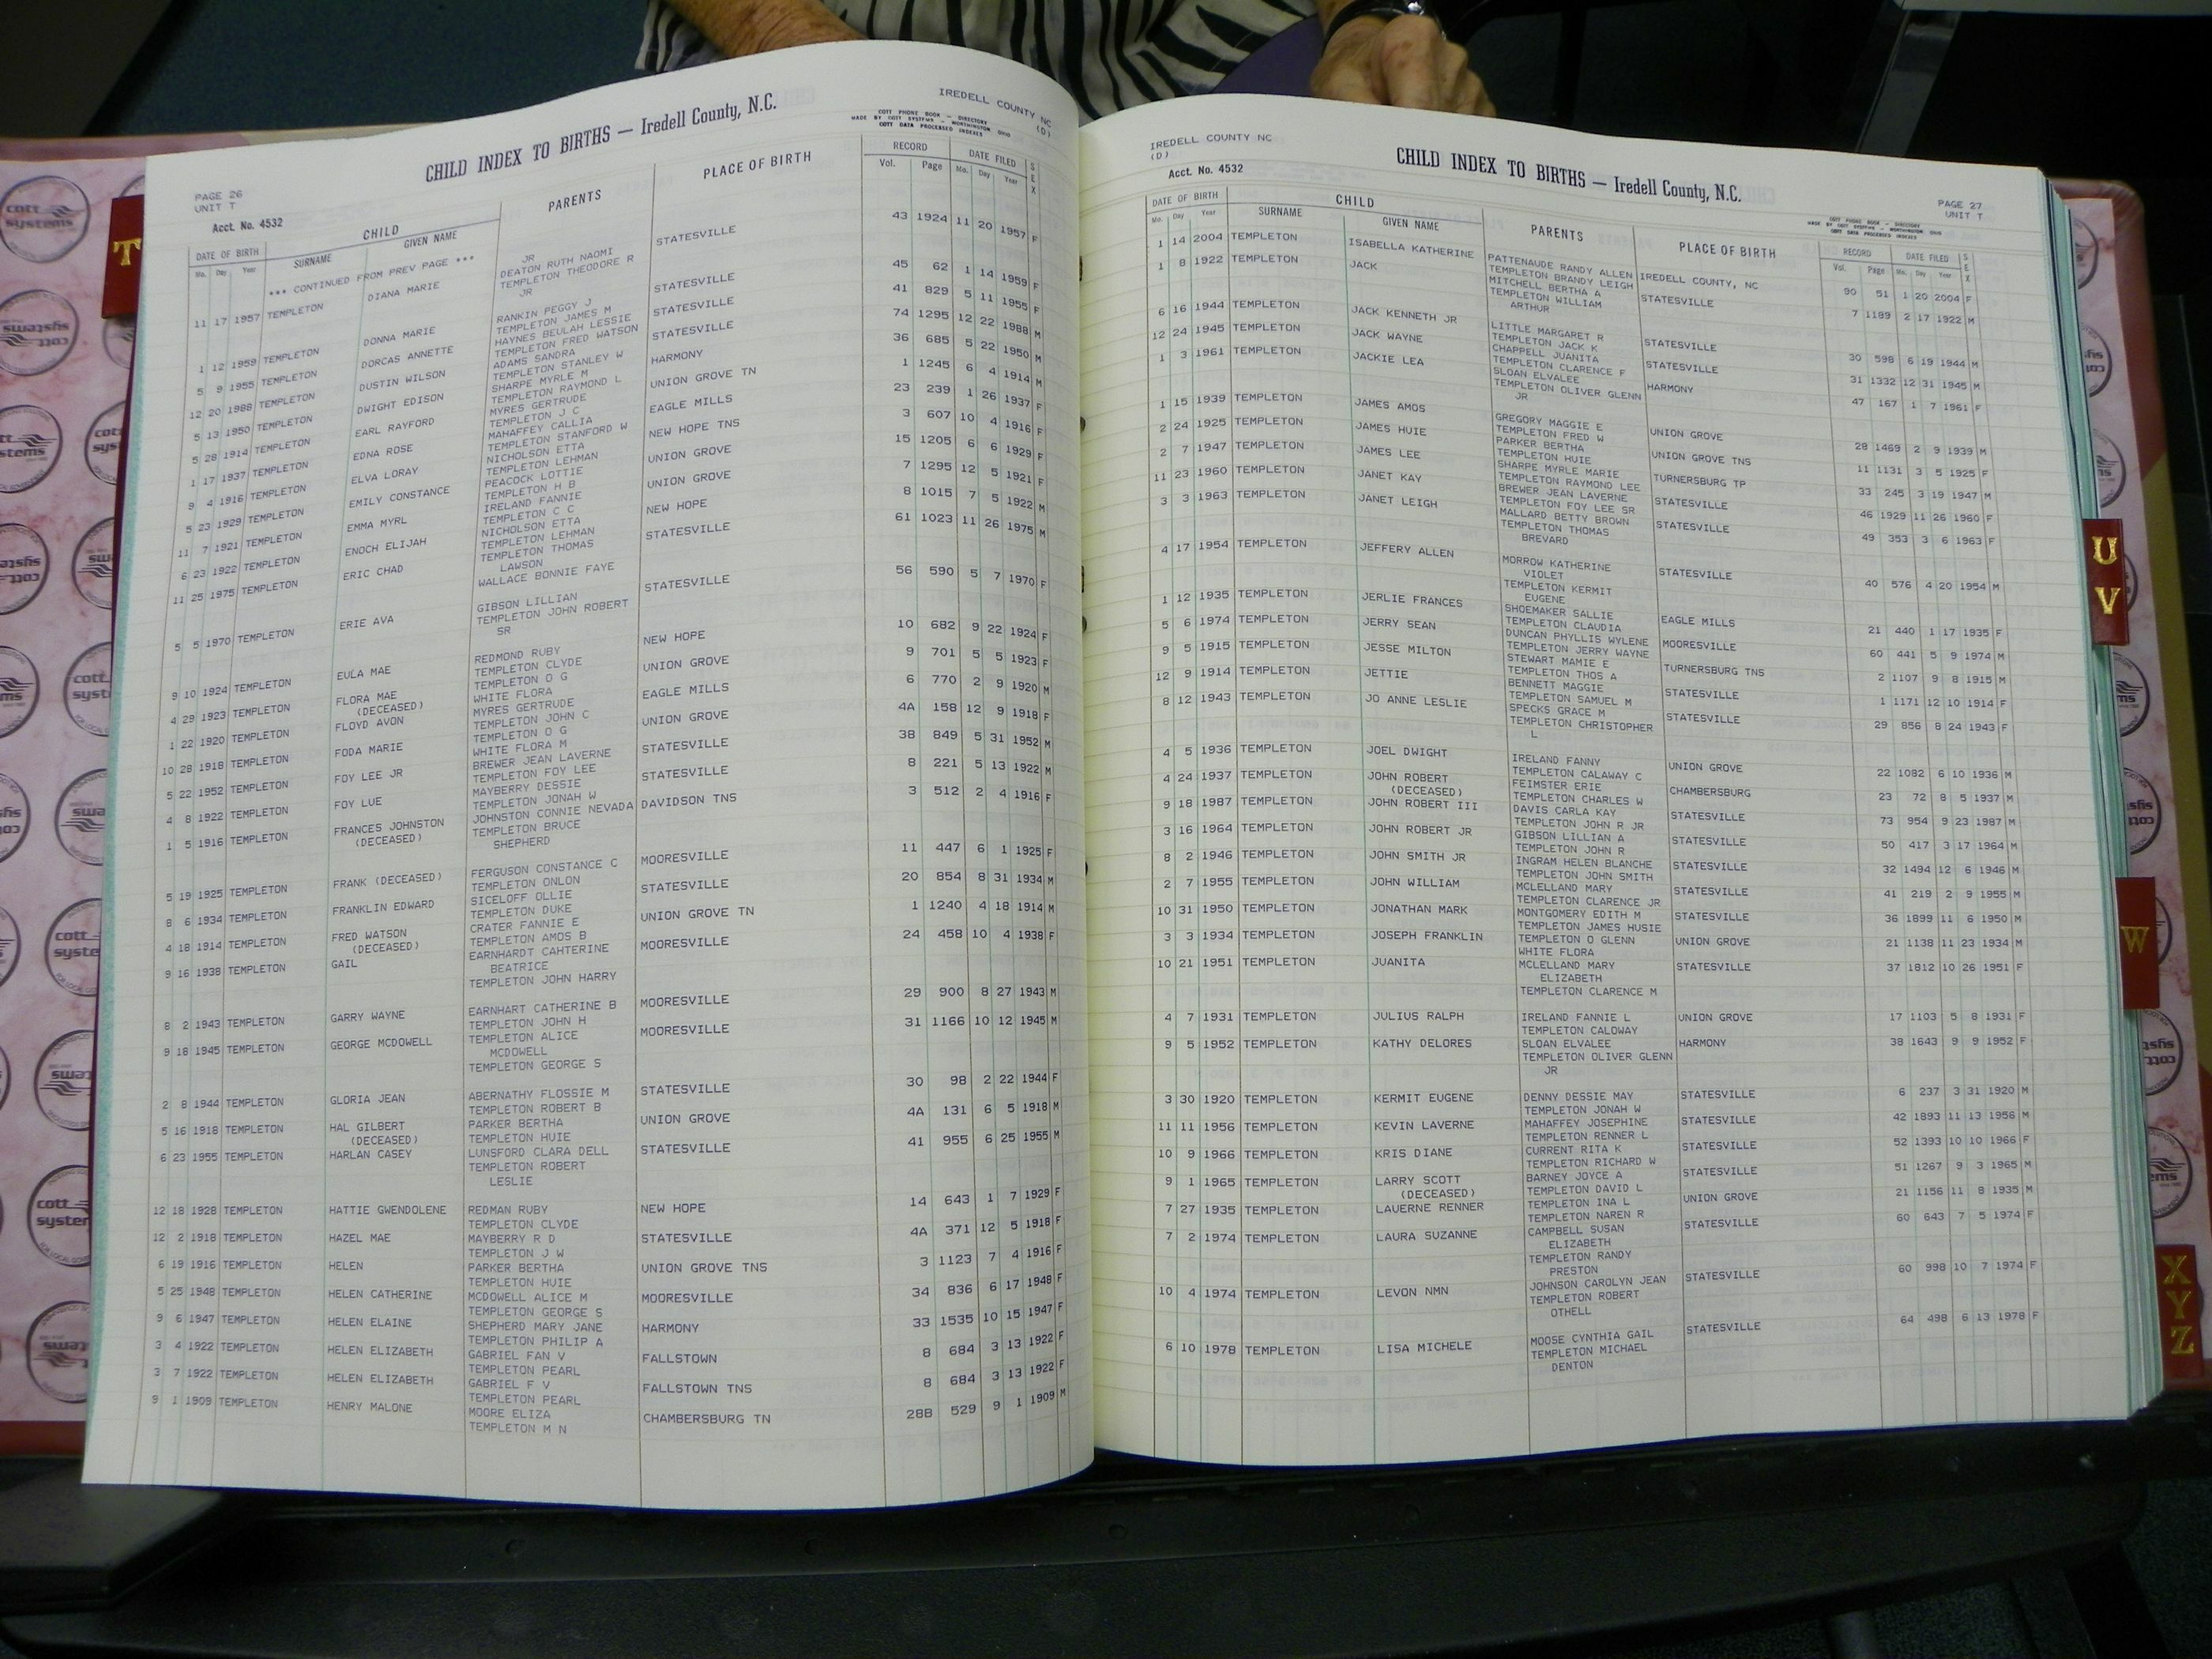 IREDELL COUNTY NC
(D)
CHILD INDEX TO BIRTHS — Iredell County, N.C.
COTT PHONE BOOK - DIRECTORY
MADE BY COTT SYSTEMS - WORTHINGTON OHIO
COTT DATA PROCESSED INDEXES
PAGE 26
UNIT T
Acct. No. 4532
DATE OF BIRTH CHILD PARENTS PLACE OF BIRTH RECORD DATE FILED SEX
Mo. Day Year SURNAME GIVEN NAME Vol. Page Mo. Day Year
*** CONTINUED FROM PREV PAGE ***
JR
11 17 1957 TEMPLETON DIANA MARIE DEATON RUTH NAOMI STATESVILLE 43 1924 11 20 1957 F
TEMPLETON THEODORE R
JR
1 12 1959 TEMPLETON DONNA MARIE RANKIN PEGGY J STATESVILLE 45 62 1 14 1959 F
TEMPLETON JAMES M
5 9 1955 TEMPLETON DORCAS ANNETTE HAYNES BEULAH LESSIE STATESVILLE 41 829 5 11 1955 F
TEMPLETON FRED WATSON
12 20 1988 TEMPLETON DUSTIN WILSON ADAMS SANDRA STATESVILLE 74 1295 12 22 1988 M
TEMPLETON STANLEY W
5 13 1950 TEMPLETON DWIGHT EDISON SHARPE MYRLE M HARMONY 36 685 5 22 1950 M
TEMPLETON RAYMOND L
5 28 1914 TEMPLETON EARL RAYFORD MYRES GERTRUDE UNION GROVE TN 1 1245 6 4 1914 M
TEMPLETON J C
1 17 1937 TEMPLETON EDNA ROSE MAHAFFEY CALLIA EAGLE MILLS 23 239 1 26 1937 F
TEMPLETON STANFORD W
9 4 1916 TEMPLETON ELVA LORAY NICHOLSON ETTA NEW HOPE TNS 3 607 10 4 1916 F
TEMPLETON LEHMAN
5 23 1929 TEMPLETON EMILY CONSTANCE PEACOCK LOTTIE UNION GROVE 15 1205 6 6 1929 F
TEMPLETON H B
11 7 1921 TEMPLETON EMMA MYRL IRELAND FANNIE UNION GROVE 7 1295 12 5 1921 F
TEMPLETON C C
6 23 1922 TEMPLETON ENOCH ELIJAH NICHOLSON ETTA NEW HOPE 8 1015 7 5 1922 M
TEMPLETON LEHMAN
11 25 1975 TEMPLETON ERIC CHAD TEMPLETON THOMAS STATESVILLE 61 1023 11 26 1975 M
LAWSON
WALLACE BONNIE FAYE
5 5 1970 TEMPLETON ERIE AVA GIBSON LILLIAN STATESVILLE 56 590 5 7 1970 F
TEMPLETON JOHN ROBERT
SR
9 10 1924 TEMPLETON EULA MAE REDMOND RUBY NEW HOPE 10 682 9 22 1924 F
TEMPLETON CLYDE
4 29 1923 TEMPLETON FLORA MAE TEMPLETON O G UNION GROVE 9 701 5 5 1923 F
(DECEASED) WHITE FLORA
1 22 1920 TEMPLETON FLOYD AVON MYRES GERTRUDE EAGLE MILLS 6 770 2 9 1920 M
TEMPLETON JOHN C
10 28 1918 TEMPLETON FODA MARIE TEMPLETON O G UNION GROVE 4A 158 12 9 1918 F
WHITE FLORA M
5 22 1952 TEMPLETON FOY LEE JR BREWER JEAN LAVERNE STATESVILLE 38 849 5 31 1952 M
TEMPLETON FOY LEE
4 8 1922 TEMPLETON FOY LUE MAYBERRY DESSIE STATESVILLE 8 221 5 13 1922 M
TEMPLETON JONAH W
1 5 1916 TEMPLETON FRANCES JOHNSTON JOHNSTON CONNIE NEVADA DAVIDSON TNS 3 512 2 4 1916 F
(DECEASED) TEMPLETON BRUCE
SHEPHERD
5 19 1925 TEMPLETON FRANK (DECEASED) FERGUSON CONSTANCE C MOORESVILLE 11 447 6 1 1925 F
TEMPLETON ONLON
8 6 1934 TEMPLETON FRANKLIN EDWARD SICELOFF OLLIE STATESVILLE 20 854 8 31 1934 M
TEMPLETON DUKE
4 18 1914 TEMPLETON FRED WATSON CRATER FANNIE E UNION GROVE TN 1 1240 4 18 1914 M
(DECEASED) TEMPLETON AMOS B
9 16 1938 TEMPLETON GAIL EARNHARDT CAHTERINE MOORESVILLE 24 458 10 4 1938 F
BEATRICE
TEMPLETON JOHN HARRY
8 2 1943 TEMPLETON GARRY WAYNE EARNHART CATHERINE B MOORESVILLE 29 900 8 27 1943 M
TEMPLETON JOHN H
9 18 1945 TEMPLETON GEORGE MCDOWELL TEMPLETON ALICE MOORESVILLE 31 1166 10 12 1945 M
MCDOWELL
TEMPLETON GEORGE S
2 8 1944 TEMPLETON GLORIA JEAN ABERNATHY FLOSSIE M STATESVILLE 30 98 2 22 1944 F
TEMPLETON ROBERT B
5 16 1918 TEMPLETON HAL GILBERT PARKER BERTHA UNION GROVE 4A 131 6 5 1918 M
(DECEASED) TEMPLETON HUIE
6 23 1955 TEMPLETON HARLAN CASEY LUNSFORD CLARA DELL STATESVILLE 41 955 6 25 1955 M
TEMPLETON ROBERT
LESLIE
12 18 1928 TEMPLETON HATTIE GWENDOLENE REDMAN RUBY NEW HOPE 14 643 1 7 1929 F
TEMPLETON CLYDE
12 2 1918 TEMPLETON HAZEL MAE MAYBERRY R D STATESVILLE 4A 371 12 5 1918 F
TEMPLETON J W
6 19 1916 TEMPLETON HELEN PARKER BERTHA UNION GROVE TNS 3 1123 7 4 1916 F
TEMPLETON HUIE
5 25 1948 TEMPLETON HELEN CATHERINE MCDOWELL ALICE M MOORESVILLE 34 836 6 17 1948 F
TEMPLETON GEORGE S
9 6 1947 TEMPLETON HELEN ELAINE SHEPHERD MARY JANE HARMONY 33 1535 10 15 1947 F
TEMPLETON PHILIP A
3 4 1922 TEMPLETON HELEN ELIZABETH GABRIEL FAN V FALLSTOWN 8 684 3 13 1922 F
TEMPLETON PEARL
3 7 1922 TEMPLETON HELEN ELIZABETH GABRIEL F V FALLSTOWN TNS 8 684 3 13 1922 F
TEMPLETON PEARL
9 1 1909 TEMPLETON HENRY MALONE MOORE ELIZA CHAMBERSBURG TN 28B 529 9 1 1909 M
TEMPLETON M N
IREDELL COUNTY NC
(D)
Acct. No. 4532
CHILD INDEX TO BIRTHS — Iredell County, N.C.
PAGE 27
UNIT T
COTT PHONE BOOK - DIRECTORY
MADE BY COTT SYSTEMS - WORTHINGTON OHIO
COTT DATA PROCESSED INDEXES
DATE OF BIRTH CHILD PARENTS PLACE OF BIRTH RECORD DATE FILED SEX
Mo. Day Year SURNAME GIVEN NAME Vol. Page Mo. Day Year
1 14 2004 TEMPLETON ISABELLA KATHERINE PATTENAUDE RANDY ALLEN IREDELL COUNTY, NC 90 51 1 20 2004 F
TEMPLETON BRANDY LEIGH
1 8 1922 TEMPLETON JACK MITCHELL BERTHA A STATESVILLE 7 1189 2 17 1922 M
TEMPLETON WILLIAM
ARTHUR
6 16 1944 TEMPLETON JACK KENNETH JR LITTLE MARGARET R STATESVILLE 30 598 6 19 1944 M
TEMPLETON JACK K
12 24 1945 TEMPLETON JACK WAYNE CHAPPELL JUANITA STATESVILLE 31 1332 12 31 1945 M
TEMPLETON CLARENCE F
1 3 1961 TEMPLETON JACKIE LEA SLOAN ELVALEE HARMONY 47 167 1 7 1961 F
TEMPLETON OLIVER GLENN
JR
1 15 1939 TEMPLETON JAMES AMOS GREGORY MAGGIE E UNION GROVE 28 1469 2 9 1939 M
TEMPLETON FRED W
2 24 1925 TEMPLETON JAMES HUIE PARKER BERTHA UNION GROVE TNS 11 1131 3 5 1925 F
TEMPLETON HUIE
2 7 1947 TEMPLETON JAMES LEE SHARPE MYRLE MARIE TURNERSBURG TP 33 245 3 19 1947 M
TEMPLETON RAYMOND LEE
11 23 1960 TEMPLETON JANET KAY BREWER JEAN LAVERNE STATESVILLE 46 1929 11 26 1960 F
TEMPLETON FOY LEE SR
3 3 1963 TEMPLETON JANET LEIGH MALLARD BETTY BROWN STATESVILLE 49 353 3 6 1963 F
TEMPLETON THOMAS
BREVARD
4 17 1954 TEMPLETON JEFFERY ALLEN MORROW KATHERINE STATESVILLE 40 576 4 20 1954 M
VIOLET
TEMPLETON KERMIT
EUGENE
1 12 1935 TEMPLETON JERLIE FRANCES SHOEMAKER SALLIE EAGLE MILLS 21 440 1 17 1935 F
TEMPLETON CLAUDIA
5 6 1974 TEMPLETON JERRY SEAN DUNCAN PHYLLIS WYLENE MOORESVILLE 60 441 5 9 1974 M
TEMPLETON JERRY WAYNE
9 5 1915 TEMPLETON JESSE MILTON STEWART MAMIE E TURNERSBURG TNS 2 1107 9 8 1915 M
TEMPLETON THOS A
12 9 1914 TEMPLETON JETTIE BENNETT MAGGIE STATESVILLE 1 1171 12 10 1914 F
TEMPLETON SAMUEL M
8 12 1943 TEMPLETON JO ANNE LESLIE SPECKS GRACE M STATESVILLE 29 856 8 24 1943 F
TEMPLETON CHRISTOPHER
L
4 5 1936 TEMPLETON JOEL DWIGHT IRELAND FANNY UNION GROVE 22 1082 6 10 1936 M
TEMPLETON CALAWAY C
4 24 1937 TEMPLETON JOHN ROBERT FEIMSTER ERIE CHAMBERSBURG 23 72 8 5 1937 M
(DECEASED) TEMPLETON CHARLES W
9 18 1987 TEMPLETON JOHN ROBERT III DAVIS CARLA KAY STATESVILLE 73 954 9 23 1987 M
TEMPLETON JOHN R JR
3 16 1964 TEMPLETON JOHN ROBERT JR GIBSON LILLIAN A STATESVILLE 50 417 3 17 1964 M
TEMPLETON JOHN R
8 2 1946 TEMPLETON JOHN SMITH JR INGRAM HELEN BLANCHE STATESVILLE 32 1494 12 6 1946 M
TEMPLETON JOHN SMITH
2 7 1955 TEMPLETON JOHN WILLIAM MCLELLAND MARY STATESVILLE 41 219 2 9 1955 M
TEMPLETON CLARENCE JR
10 31 1950 TEMPLETON JONATHAN MARK MONTGOMERY EDITH M STATESVILLE 36 1899 11 6 1950 M
TEMPLETON JAMES HUSIE
3 3 1934 TEMPLETON JOSEPH FRANKLIN TEMPLETON O GLENN UNION GROVE 21 1138 11 23 1934 M
WHITE FLORA
10 21 1951 TEMPLETON JUANITA MCLELLAND MARY STATESVILLE 37 1812 10 26 1951 F
ELIZABETH
TEMPLETON CLARENCE M
4 7 1931 TEMPLETON JULIUS RALPH IRELAND FANNIE L UNION GROVE 17 1103 5 8 1931 F
TEMPLETON CALOWAY
9 5 1952 TEMPLETON KATHY DELORES SLOAN ELVALEE HARMONY 38 1643 9 9 1952 F
TEMPLETON OLIVER GLENN
JR
3 30 1920 TEMPLETON KERMIT EUGENE DENNY DESSIE MAY STATESVILLE 6 237 3 31 1920 M
TEMPLETON JONAH W
11 11 1956 TEMPLETON KEVIN LAVERNE MAHAFFEY JOSEPHINE STATESVILLE 42 1893 11 13 1956 M
TEMPLETON RENNER L
10 9 1966 TEMPLETON KRIS DIANE CURRENT RITA K STATESVILLE 52 1393 10 10 1966 F
TEMPLETON RICHARD W
9 1 1965 TEMPLETON LARRY SCOTT BARNEY JOYCE A STATESVILLE 51 1267 9 3 1965 M
(DECEASED) TEMPLETON DAVID L
7 27 1935 TEMPLETON LAUERNE RENNER TEMPLETON INA L UNION GROVE 21 1156 11 8 1935 M
TEMPLETON NAREN R
7 2 1974 TEMPLETON LAURA SUZANNE CAMPBELL SUSAN STATESVILLE 60 643 7 5 1974 F
ELIZABETH
TEMPLETON RANDY
PRESTON
10 4 1974 TEMPLETON LEVON NMN JOHNSON CAROLYN JEAN STATESVILLE 60 998 10 7 1974 F
TEMPLETON ROBERT
OTHELL
6 10 1978 TEMPLETON LISA MICHELE MOOSE CYNTHIA GAIL STATESVILLE 64 498 6 13 1978 F
TEMPLETON MICHAEL
DENTON
T
U
V
W
X
Y
Z
cott
systems